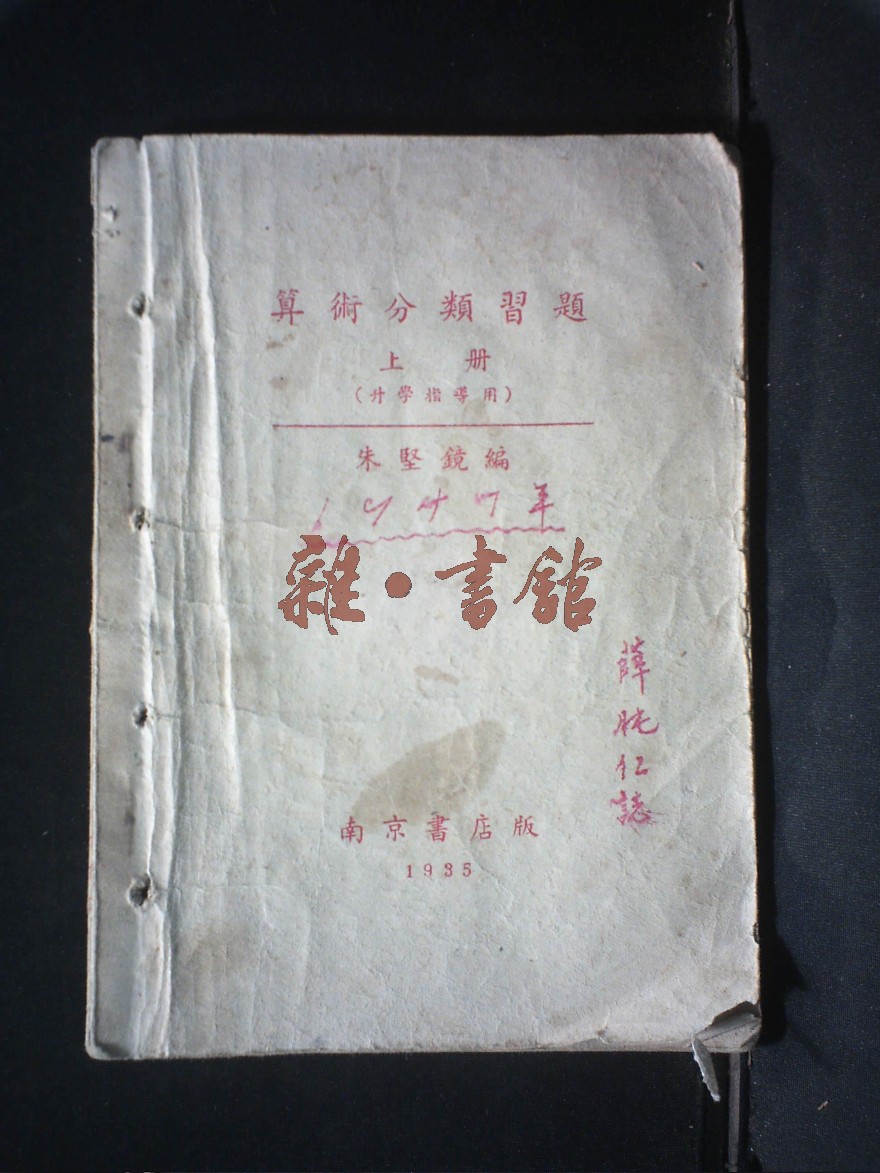 算術分類習題
上册
(升學指導用)
朱堅鏡編
1947年
雜·書館
薛
仁誌
南京書店版
1935